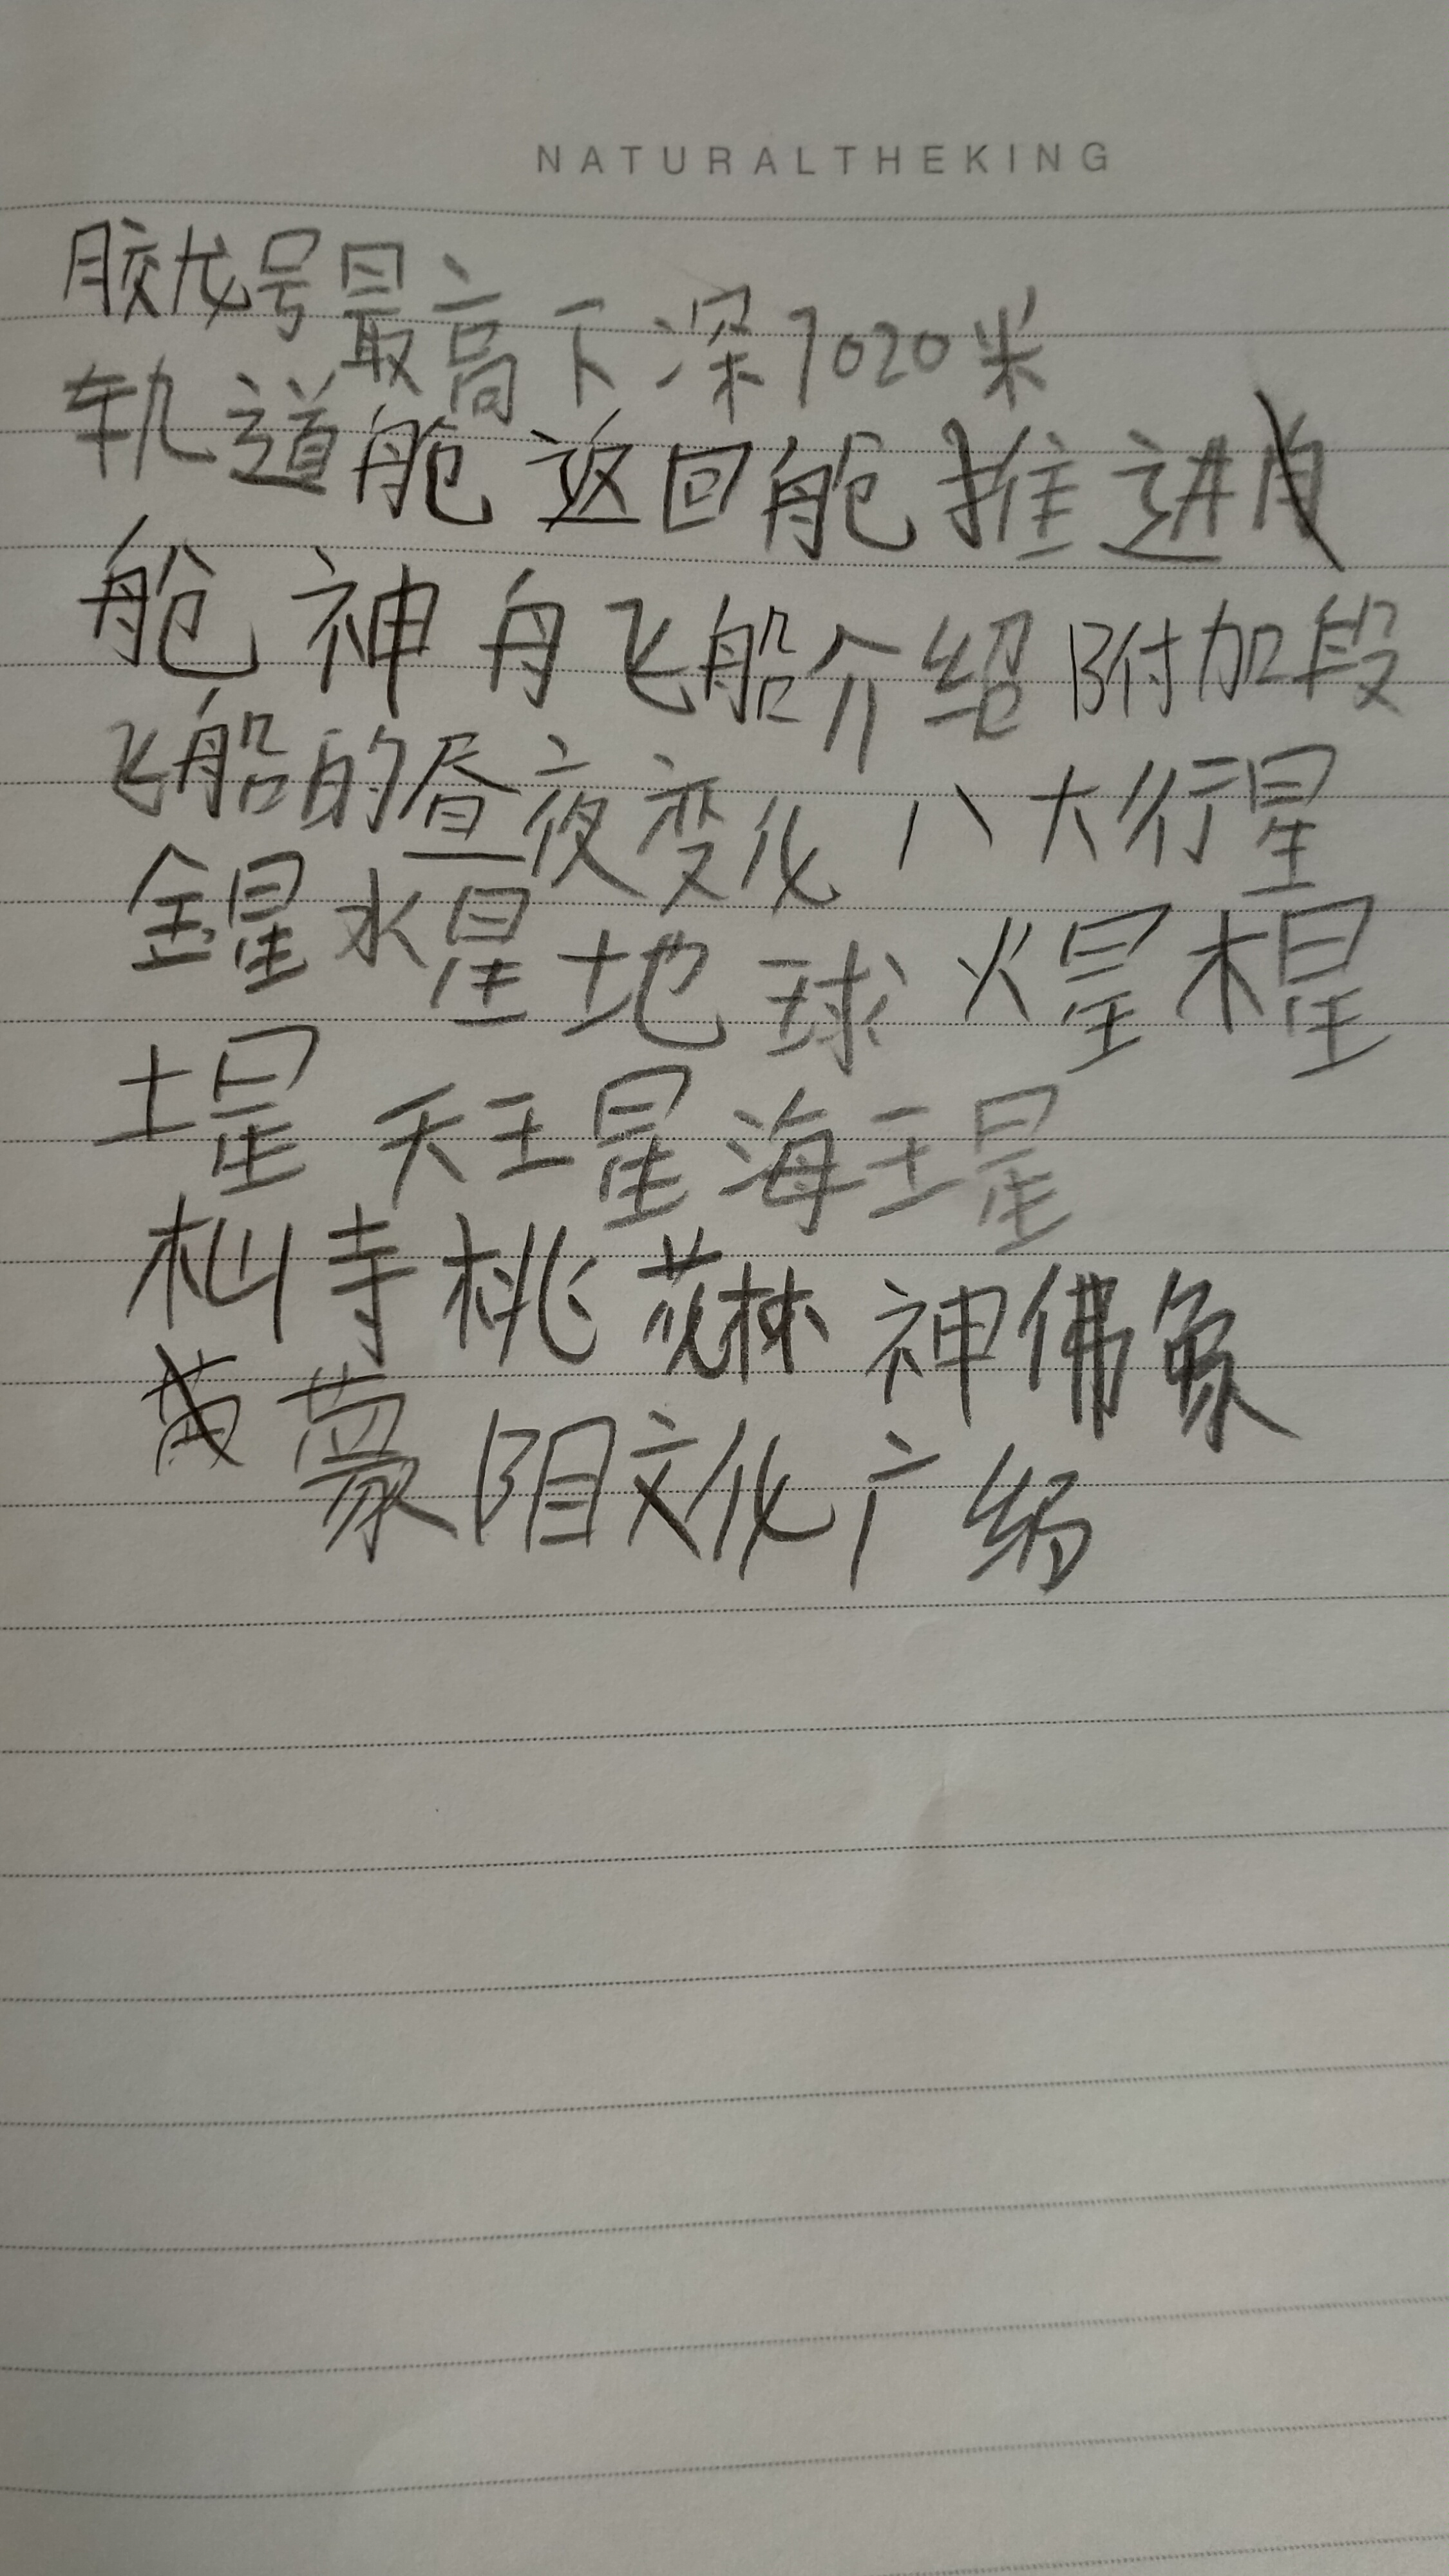 NATURALTHEKING
胶龙号最高下深7020米
轨道舱返回舱推进
舱神舟飞船介绍附加段
飞船的昼夜变化八大行星
金星水星地球火星木星
土星天王星海王星
杣寺桃花林神佛象
蒙阳文化广